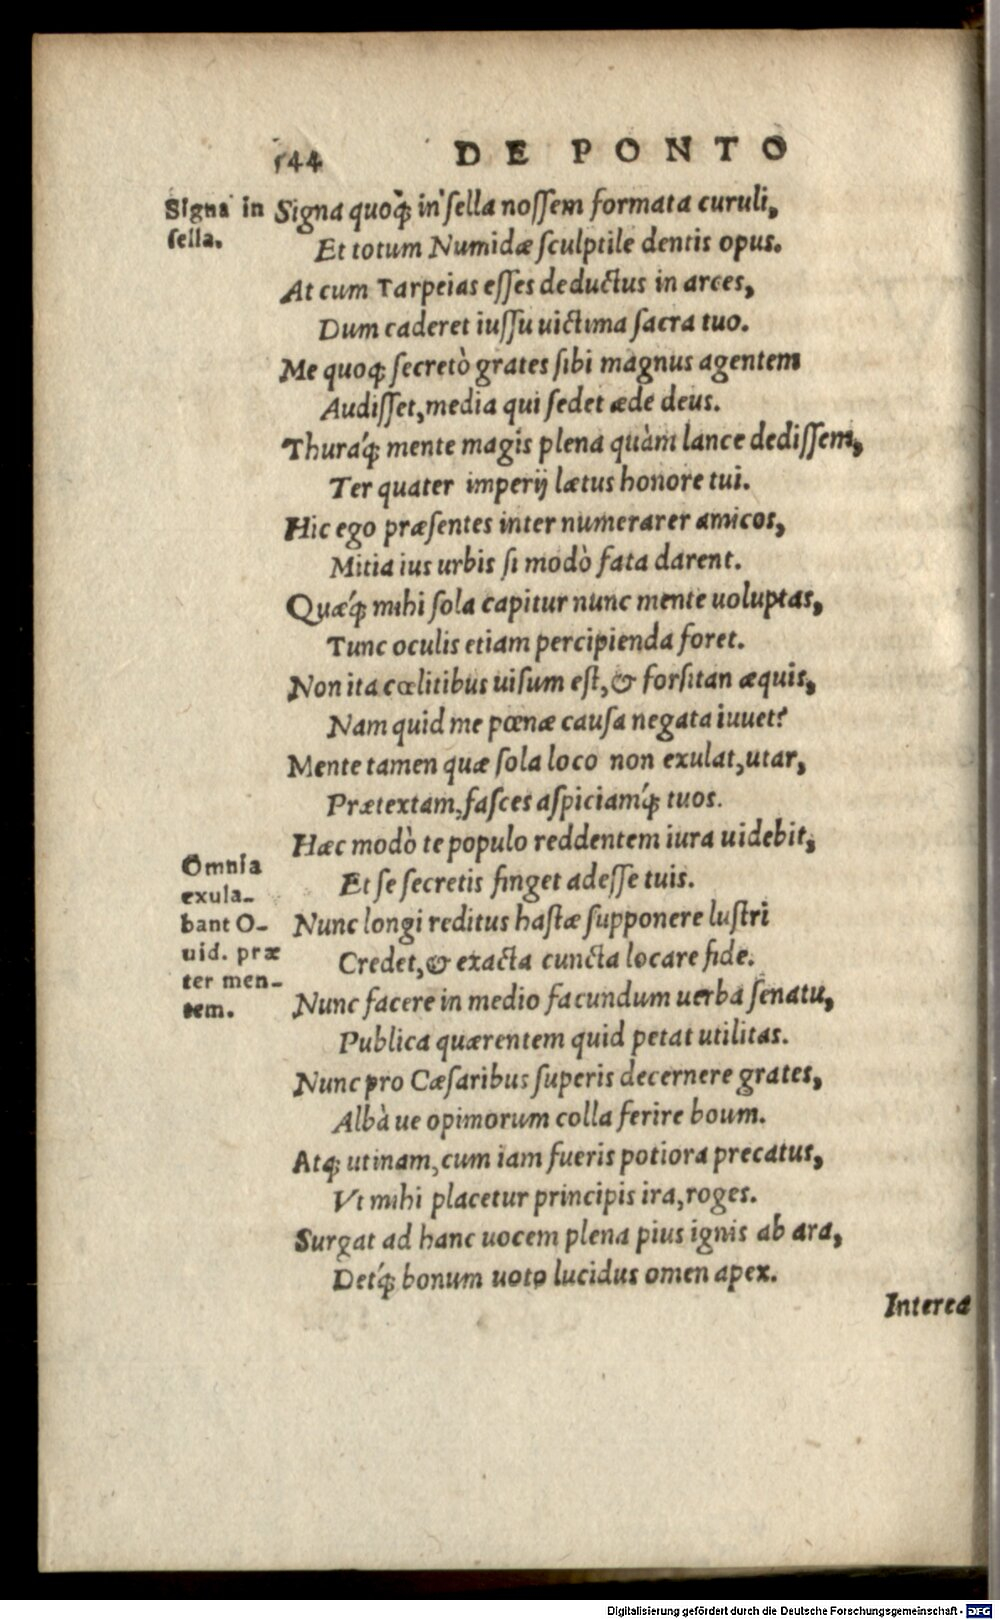 144 DE PONTO
Signa in
sella.
Signa quoq́; in sella nossem formata curuli,
Et totum Numidæ sculptile dentis opus.
At cum Tarpeias esses deductus in arces,
Dum caderet iussu uictima sacra tuo.
Me quoq; secretò grates sibi magnus agentem
Audisset, media qui sedet æde deus.
Thuraq́; mente magis plena quàm lance dedissem,
Ter quater imperij lætus honore tui.
Hic ego præsentes inter numerarer amicos,
Mitia ius urbis si modò fata darent.
Quæq́; mihi sola capitur nunc mente uoluptas,
Tunc oculis etiam percipienda foret.
Non ita cœlitibus uisum est, & forsitan æquis,
Nam quid me pœnæ causa negata iuuet?
Mente tamen quæ sola loco non exulat, utar,
Prætextam, fasces aspiciamq́; tuos.
Hæc modò te populo reddentem iura uidebit,
Et se secretis finget adesse tuis.
Omnia
exula-
bant O-
uid. præ
ter men-
tem.
Nunc longi reditus hastæ supponere lustri
Credet, & exacta cuncta locare fide.
Nunc facere in medio facundum uerba senatu,
Publica quærentem quid petat utilitas.
Nunc pro Cæsaribus superis decernere grates,
Albà ue opimorum colla ferire boum.
Atq; utinam, cum iam fueris potiora precatus,
Vt mihi placetur principis ira, roges.
Surgat ad hanc uocem plena pius ignis ab ara,
Detq́; bonum uoto lucidus omen apex.
Interea
Digitalisierung gefördert durch die Deutsche Forschungsgemeinschaft - DFG